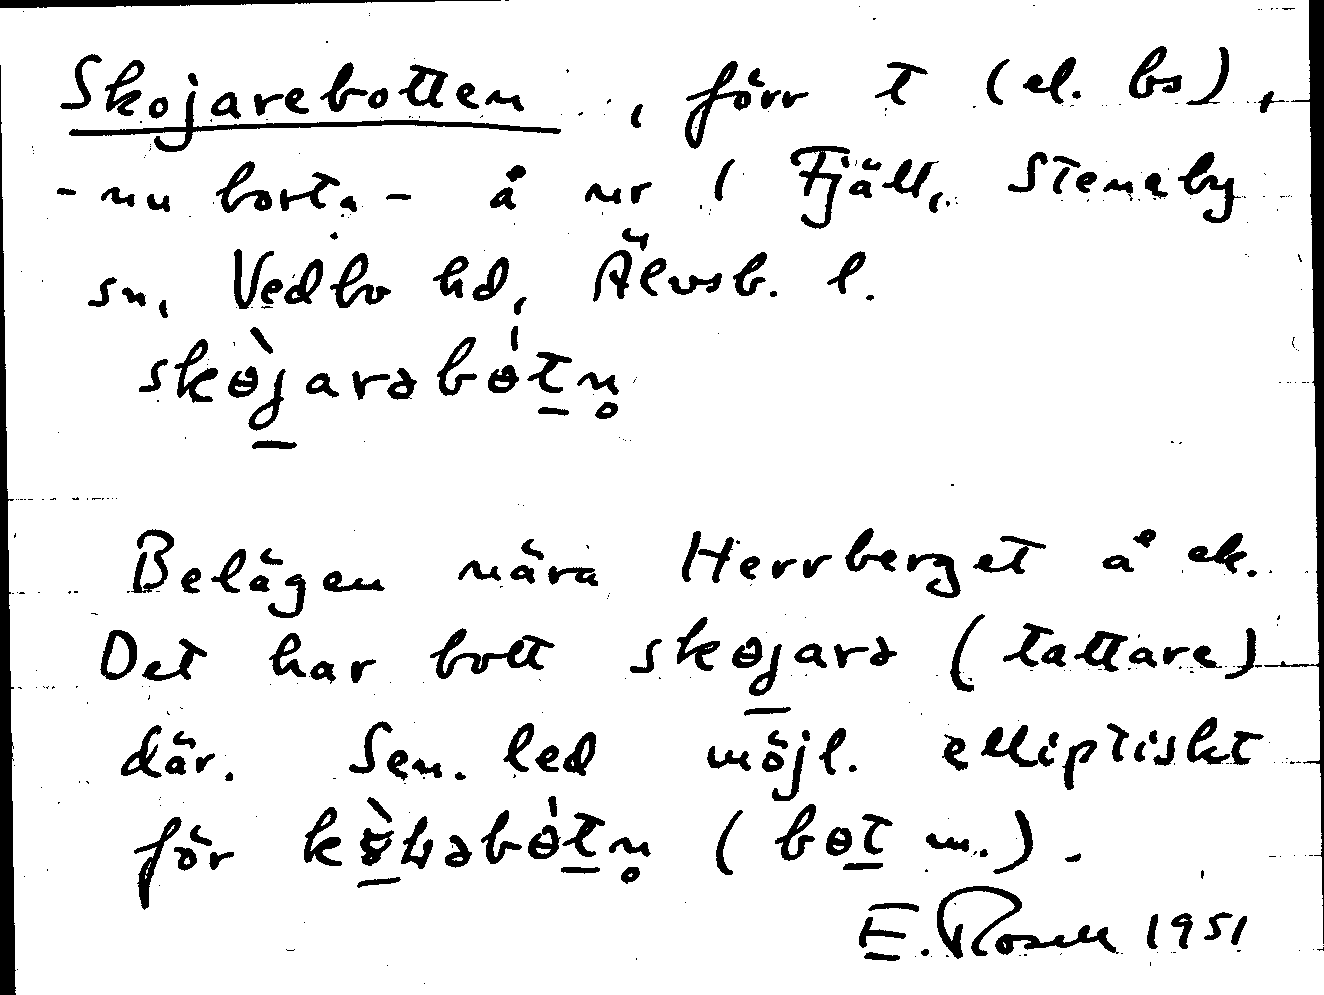 Skojarebotten, förr t (el. bs),
- nu borta - å nr 1 Fjäll, Steneby
sn, Vedbo hd, Älvsb. l.
skɵ̀jarəbɵ́tn̥
Belägen nära Herrberget å ek.
Det har bott skɵjarə (tattare)
där. Sen. led möjl. elliptiskt
för (bɵt m.).
E. Rosell 1951